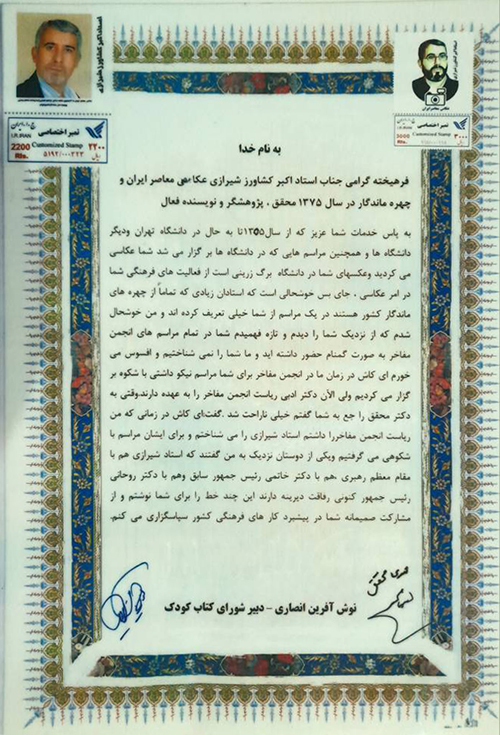 استاد اکبر کشاورز شیرازی
تمبر اختصاصی
I.R.IRAN
Customized Stamp
2200
Rls.
۲۲۰۰
ریال
عکاس معاصر ایران
تمبر اختصاصی
I.R.IRAN
Customized Stamp
3000
Rls.
۳۰۰۰
ریال
به نام خدا
فرهیخته گرامی جناب استاد اکبر کشاورز شیرازی عکاس معاصر ایران و
چهره ماندگار در سال ۱۳۷۵ محقق ، پژوهشگر و نویسنده فعال
به پاس خدمات شما عزیز که از سال۱۳۵۵تا به حال در دانشگاه تهران ودیگر
دانشگاه ها و همچنین مراسم هایی که در دانشگاه ها بر گزار می شد شما عکاسی
می کردید وعکسهای شما در دانشگاه برگ زرینی است از فعالیت های فرهنگی شما
در امر عکاسی ، جای بس خوشحالی است که استادان زیادی که تماماً از چهره های
ماندگار کشور هستند در یک مراسم از شما خیلی تعریف کرده اند و من خوشحال
شدم که از نزدیک شما را دیدم و تازه فهمیدم شما در تمام مراسم های انجمن
مفاخر به صورت گمنام حضور داشته اید و ما شما را نمی شناختیم و افسوس می
خورم ای کاش در زمان ما در انجمن مفاخر برای شما مراسم نیکو داشتی با شکوه بر
گزار می کردیم ولی الآن دکتر ادبی ریاست انجمن مفاخر را به عهده دارند.وقتی به
دکتر محقق را جع به شما گفتم خیلی ناراحت شد .گفت‌ای کاش در زمانی که من
ریاست انجمن مفاخررا داشتم استاد شیرازی را می شناختم و برای ایشان مراسم با
شکوهی می گرفتیم ویکی از دوستان نزدیک به من گفتند که استاد شیرازی هم با
مقام معظم رهبری ،هم با دکتر خاتمی رئیس جمهور سابق وهم با دکتر روحانی
رئیس جمهور کنونی رفاقت دیرینه دارند این چند خط را برای شما نوشتم و از
مشارکت صمیمانه شما در پیشبرد کار های فرهنگی کشور سپاسگزاری می کنم.
نوش آفرین انصاری - دبیر شورای کتاب کودک